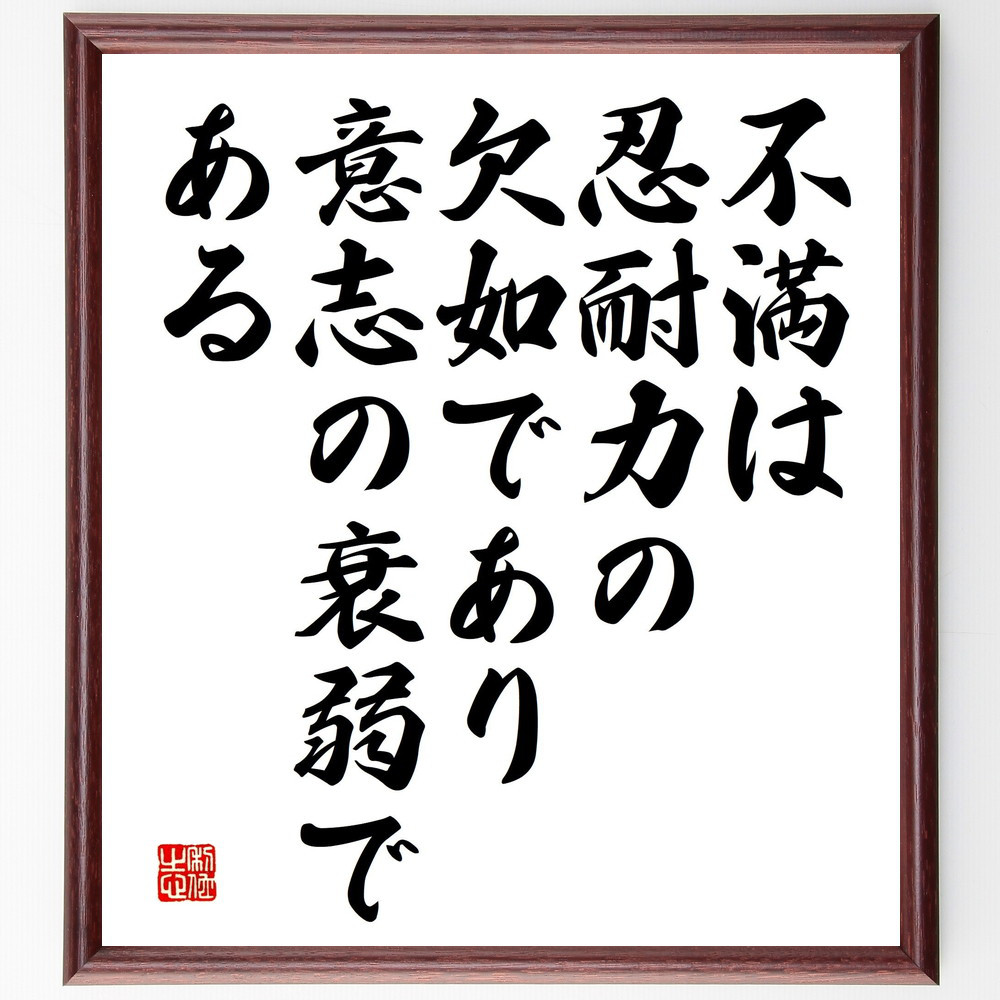 不満は
忍耐力の
欠如であり
意志の衰弱で
ある